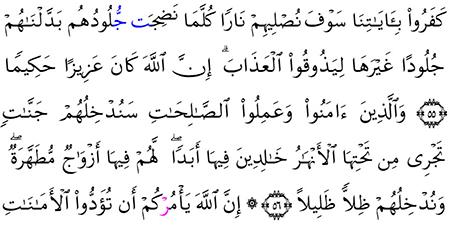 كَفَرُوا۟ بِـَٔايَـٰتِنَا سَوْفَ نُصْلِيهِمْ نَارًا كُلَّمَا نَضِجَت جُّلُودُهُم بَدَّلْنَـٰهُمْ
جُلُودًا غَيْرَهَا لِيَذُوقُوا۟ ٱلْعَذَابَ ۗ إِنَّ ٱللَّهَ كَانَ عَزِيزًا حَكِيمًا
﴿٥٥﴾ وَٱلَّذِينَ ءَامَنُوا۟ وَعَمِلُوا۟ ٱلصَّـٰلِحَـٰتِ سَنُدْخِلُهُمْ جَنَّـٰتٍ
تَجْرِى مِن تَحْتِهَا ٱلْأَنْهَـٰرُ خَـٰلِدِينَ فِيهَآ أَبَدًا ۖ لَّهُمْ فِيهَآ أَزْوَٰجٌ مُّطَهَّرَةٌ ۖ
وَنُدْخِلُهُمْ ظِلًّا ظَلِيلًا ﴿٥٦﴾ ۞ إِنَّ ٱللَّهَ يَأْمُرْكُمْ أَن تُؤَدُّوا۟ ٱلْأَمَـٰنَـٰتِ